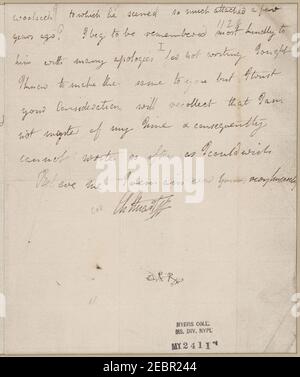 to which he seemed so much attached a few
years ago? I beg to be remembered most kindly to
him with many apologies for not writing I ought
I know to make the same to you but I trust
your consideration will recollect that I am
not master of my time & consequently
cannot write as often as I could wish
Believe me very sincerely
MYERS COLL.
MS. DIV. NYPL
MY 2411
alamy
Image ID: 2EBR244
www.alamy.com